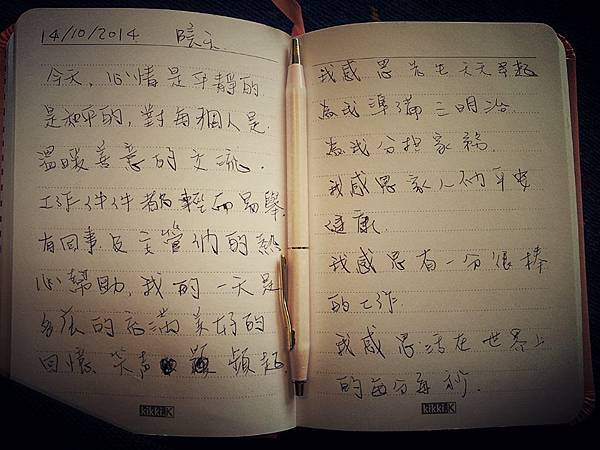 14/10/2014 陰天.
今天, 心情是平靜的
是和平的, 對每個人是
溫暖善意的交流.
工作件件都輕而易舉,
有同事及主管們的熱
心幫助, 我的一天是
的充滿美好的
回憶. 笑声 頻頻起
kikki.K
我感恩先生天天早起
為我準備三明治.
為我分担家務.
我感恩家人的平安
健康.
我感恩有一分很棒
的工作.
我感恩活在世界上
的每分每秒.
kikki.K